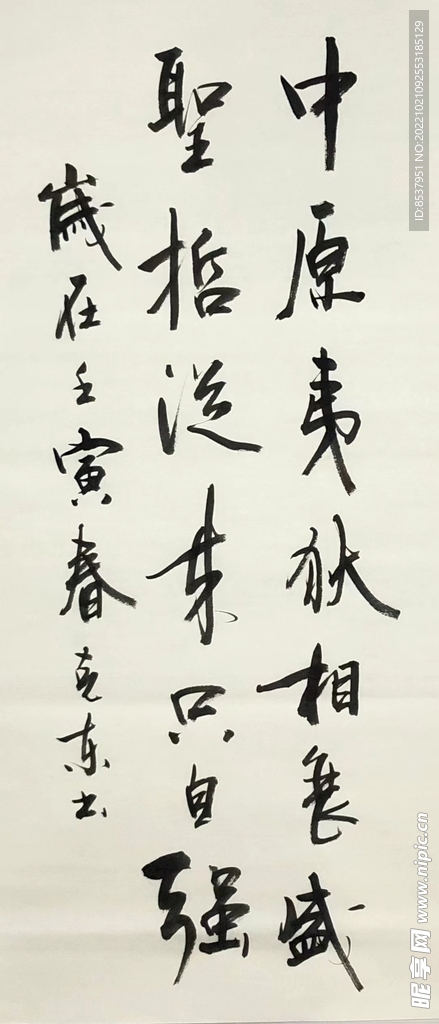 中原夷狄相衰盛
聖哲從来只自强
歲在壬寅春克东书
ID:8537951 NO:20221021092553185129
昵享网 www.nipic.cn